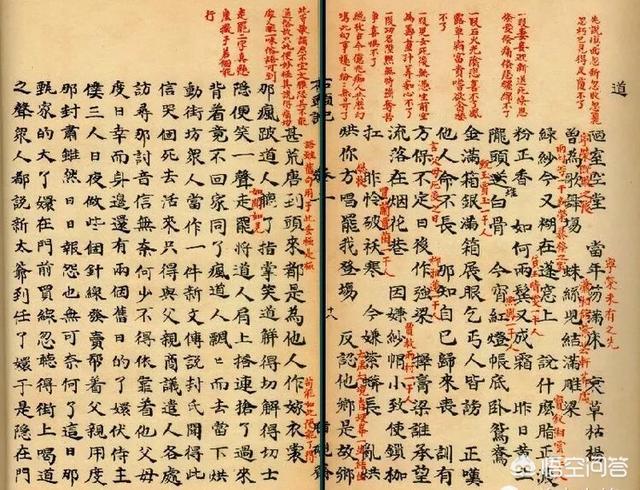 道
先說塲面忽新忽敗忽麗
忽朽已見得反覆不了
一段妻妾迎新送死倐恩
倐愛倐痛倐悲纏綿不了
一段石火光陰悲喜不了風
露草霜富貴嗜欲貪婪不了
一段兒女死後無憑生前空
為籌畫計算痴心不了
一段功名陞黜無時強奪苦
爭喜懼不了
總收古今億兆痴人共歷幻
塲此幻事擾擾紛紛無日可了
陋室空堂　當年笏滿床　衰草枯楊
寧榮未有之先
曾為歌舞場　蛛絲兒結滿雕梁
寧榮既敗之後
瀟湘館紫芸軒等處
綠紗今又糊在蓬窓上　說什麼脂正濃
雨村等一干新榮暴發之家
寶釵湘雲一干人
粉正香　如何兩鬢又成霜　昨日黃土
黛玉晴雯一干人
隴頭送白骨　今宵紅燈帳底卧鴛鴦
熙鳳一干人
金滿箱銀滿箱展眼乞丐人皆謗　正嘆
甄玉賈玉一干人
他人命不長　那知自己歸來喪　訓有
言父母死後之日
方保不定日後作強梁　擇膏梁誰承望
柳湘蓮一干人
流落在烟花巷　因嫌紗帽小致使鎖枷
賈赦雨村一干人
扛　昨怜破袄寒　今嫌紫蟒長　亂烘
賈蘭賈菌一干人
烘你方唱罷我登場　反認他鄉是故鄉
石頭記　卷一　十八　脂硯齋
此等歌謠原不宜太雅恐其不能
通俗故只此便妙極其說得痛切
處又非一味俗語可到
走罷二字真懸
崖撒手若個能
行
甚荒唐到頭來都是為他人作嫁衣裳
語雖舊句用于此妥極是極
苟能如此便能了得
那瘋跛道人聽了拍掌笑道解得切解得切士
隱便笑一聲走罷將道人肩上搭連搶了過來
如聞如見
背着竟不回家同了瘋道人飄飄而去當下烘
動街坊衆人當作一件新文傳說封氏聞得此
信哭個死去活來只得與父親商議遣人各處
訪尋那討音信無奈何少不得依靠着他父母
度日幸而身邊還有兩個舊日的了嬛伏侍主
僕三人日夜作些個針線發賣帮着父親用度
那封肅雖然日日報怨也無可奈何了這日那
甄家的大了嬛在門前買線忽聽得街上喝道
之聲衆人都說新太爺到任了嬛于是隱在門
悟空问答